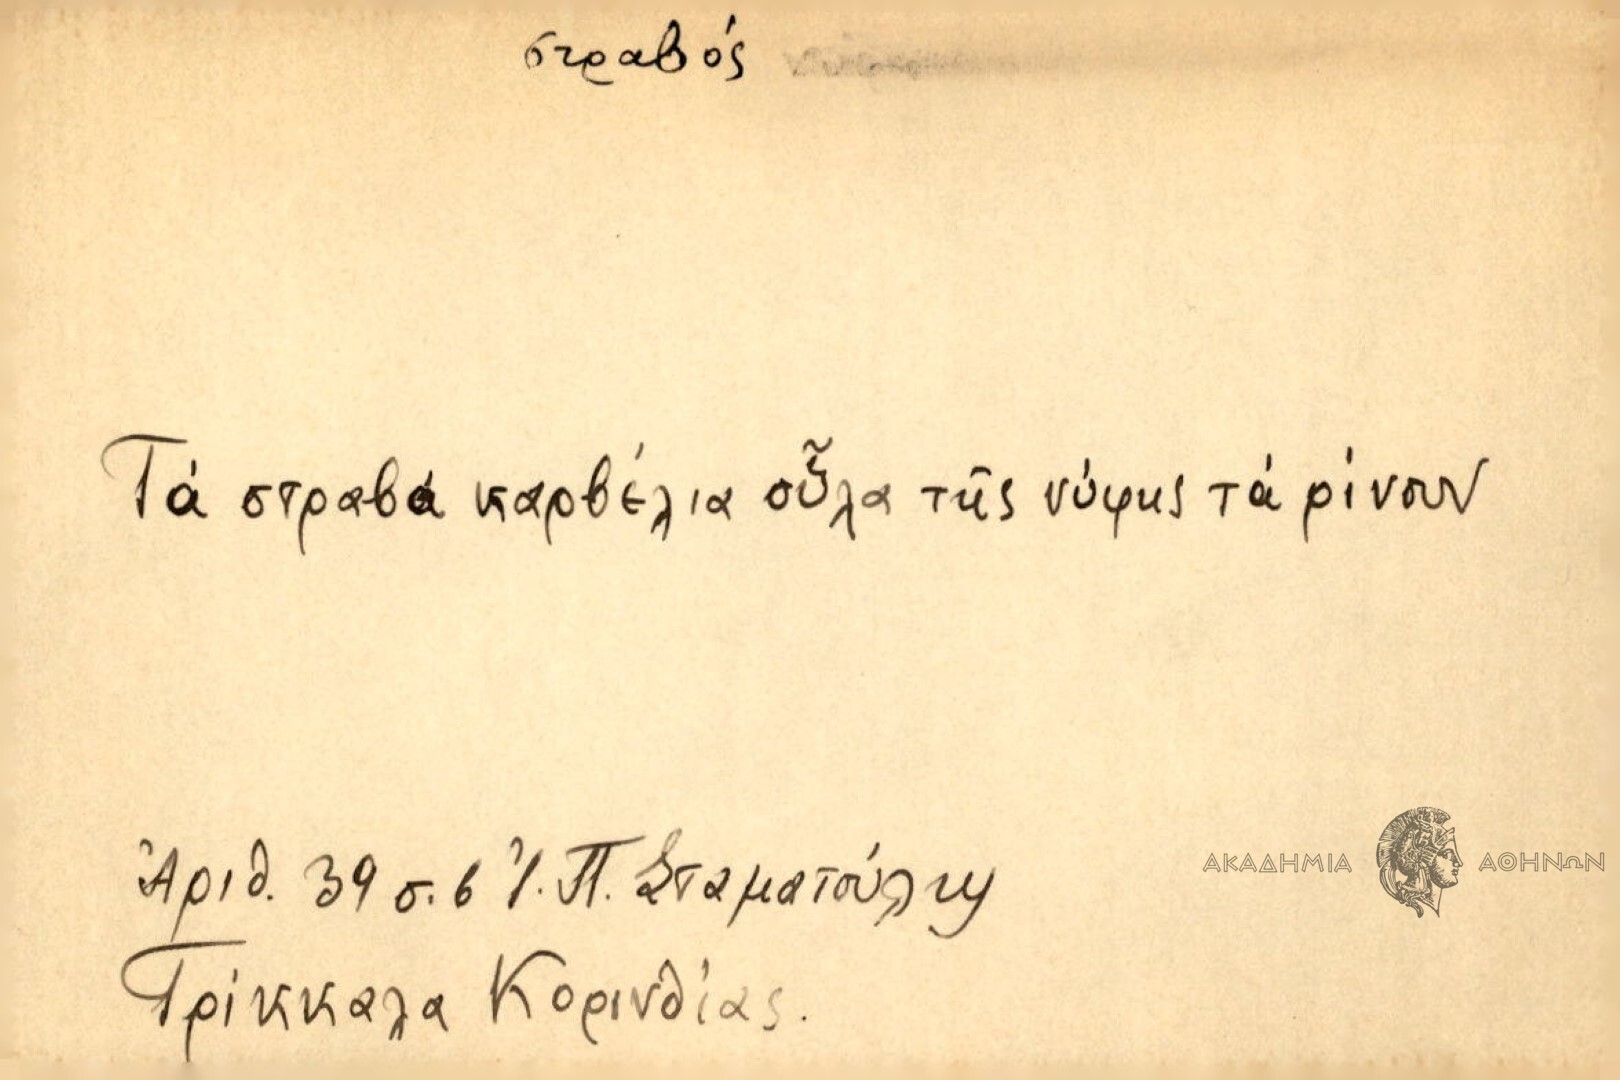 στραβός
Τά στραβά καρβέλια οὖλα τῆς νύφης τά ρίνουν
Ἀριθ. 39 σ. 6 Ἰ. Π. Σταματούλη
Τρίκκαλα Κορινθίας.
ΑΚΑΔΗΜΙΑ ΑΘΗΝΩΝ